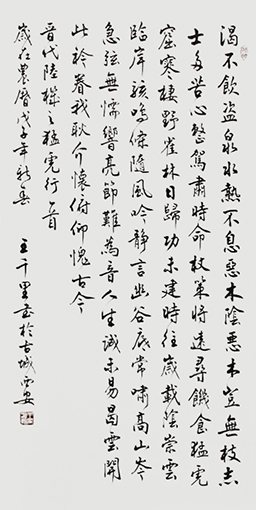 渴不飲盜泉水熱不息惡木陰惡木豈無枝志
士多苦心整駕肅時命杖策將遠尋饑食猛虎
窟寒棲野雀林日歸功未建時往歲載陰崇雲
臨岸駭鳴條隨風吟靜言幽谷底常嘯高山岑
急弦無懦響亮節難為音人生誠未易曷雲開
此衿眷我耿介懷俯仰愧古今
晉代陸機之猛虎行一首
歲在農曆戊子年
王千里書於古城西安